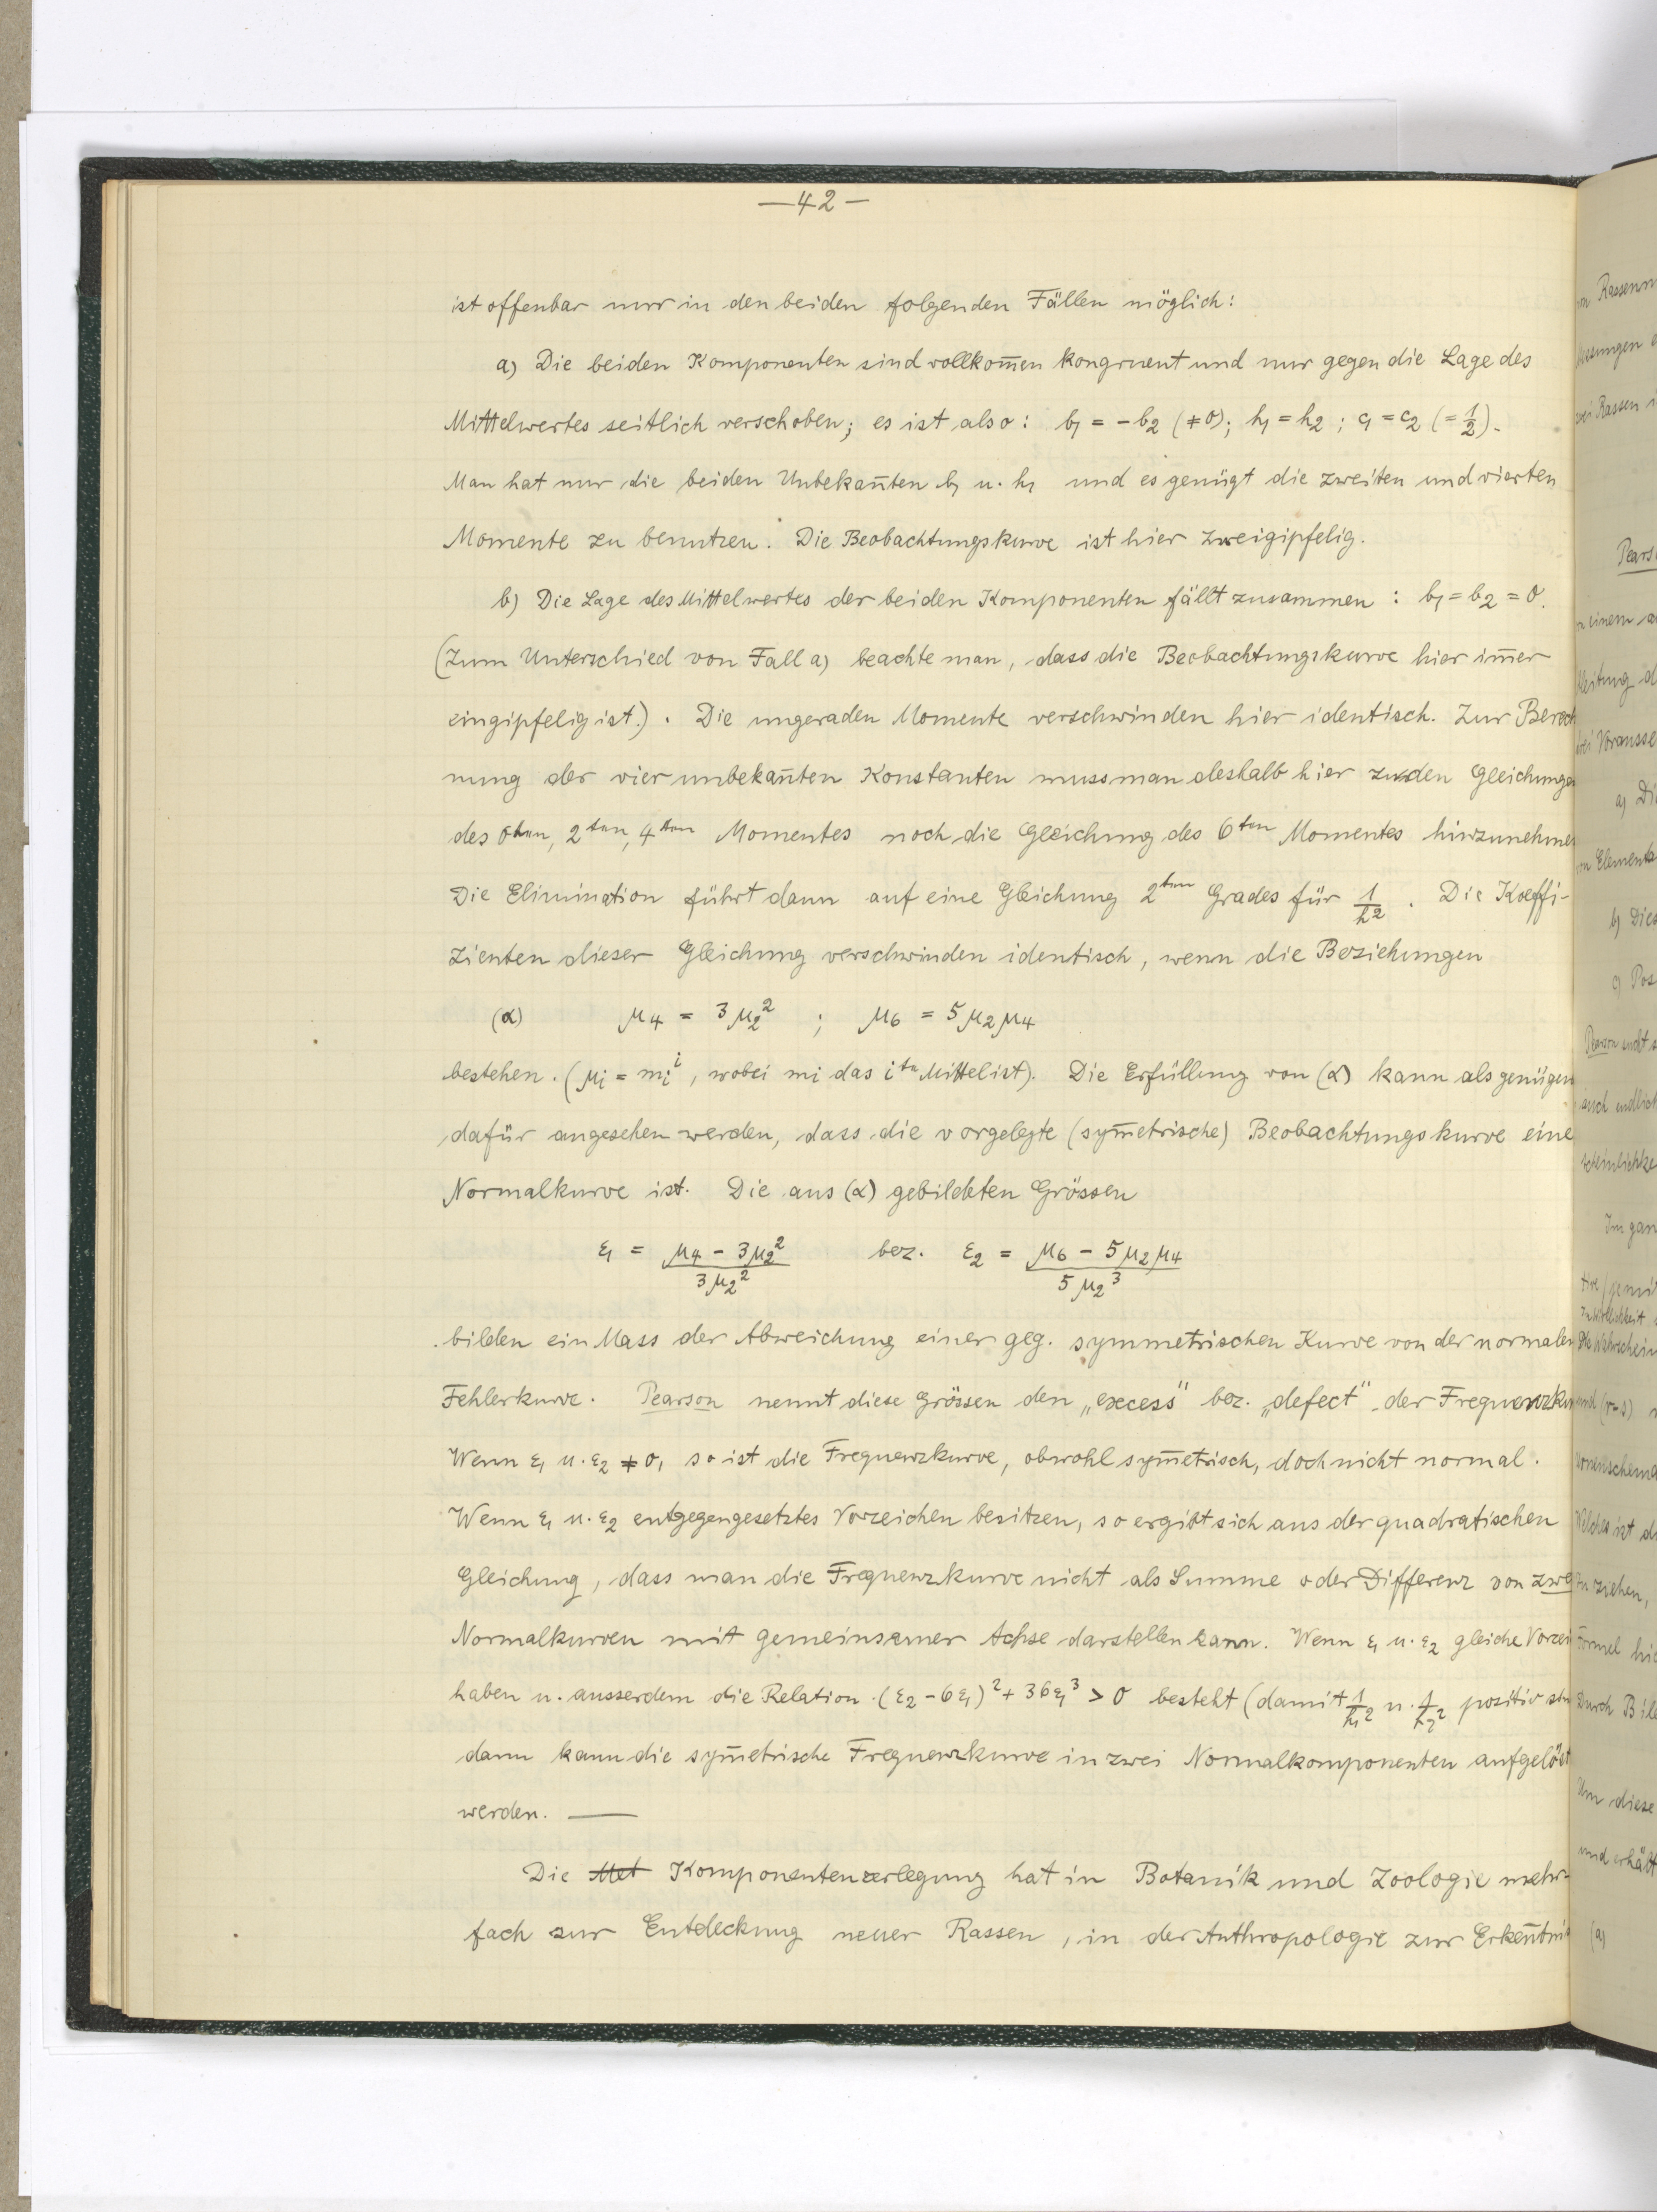 —42—
ist offenbar nur in den beiden folgenden Fällen möglich:
a) Die beiden Komponenten sind vollkom̅en kongruent und nur gegen die Lage des
Mittelwertes seitlich verschoben; es ist also: b₁ = −b₂ (≠0); h₁ = h₂ ; c₁ = c₂ (= 1/2).
Man hat nur die beiden Unbekan̅ten b₁ u. h₁ und es genügt die zweiten und vierten
Momente zu benutzen. Die Beobachtungskurve ist hier zweigipfelig.
b) Die Lage des Mittelwertes der beiden Komponenten fällt zusammen : b₁ = b₂ = 0.
(Zum Unterschied von Fall a) beachte man, dass die Beobachtungskurve hier im̅er
eingipfelig ist.). Die ungeraden Momente verschwinden hier identisch. Zur Berech
nung der vier unbekan̅ten Konstanten muss man deshalb hier zu den Gleichunge
des 0ten, 2ten, 4ten Momentes noch die Gleichung des 6ten Momentes hinzunehme
Die Elimination führt dann auf eine Gleichung 2ten Grades für 1/h². Die Koeffi-
zienten dieser Gleichung verschwinden identisch, wenn die Beziehungen
(α) μ₄ = 3μ₂² ; μ₆ = 5μ₂μ₄
bestehen. (μᵢ = mᵢⁱ, wobei mᵢ das iᵗᵉ Mittel ist). Die Erfüllung von (α) kann als genügen
dafür angesehen werden, dass die vorgelegte (sym̅etrische) Beobachtungskurve eine
Normalkurve ist. Die aus (α) gebildeten Grössen
ε₁ = (μ₄ − 3μ₂²)/(3μ₂²) bez. ε₂ = (μ₆ − 5μ₂μ₄)/(5μ₂³)
bilden ein Mass der Abweichung einer geg. symmetrischen Kurve von der normalen
Fehlerkurve. Pearson nennt diese Grössen den „excess" bez. „defect" der Frequenzku
Wenn ε₁ u. ε₂ ≠ 0, so ist die Frequenzkurve, obwohl sym̅etrisch, doch nicht normal.
Wenn ε₁ u. ε₂ entgegengesetztes Vorzeichen besitzen, so ergibt sich aus der quadratischen
Gleichung, dass man die Frequenzkurve nicht als Summe oder Differenz von zwe
Normalkurven mit gemeinsamer Achse darstellen kann. Wenn ε₁ u. ε₂ gleiche Vorzei
haben u. ausserdem die Relation (ε₂ − 6ε₁)² + 36ε₁³ > 0 besteht (damit 1/h₁² u. 1/h₂² positiv sin
dann kann die sym̅etrische Frequenzkurve in zwei Normalkomponenten aufgelöst
werden. —
Die Met Komponentenzerlegung hat in Botanik und Zoologie mehr-
fach zur Entdeckung neuer Rassen, in der Anthropologie zur Erken̅tnis
Rassenm
zwei Rassen
Pears
einem
Vorausse
a) Di
Element
b) Dies
c) Pos
Pearson
auch endlich
Im gan
und (r-s)
Welches ist d
zu ziehen,
Formel hi
Durch Bil
Um diese
und erhält
(a)